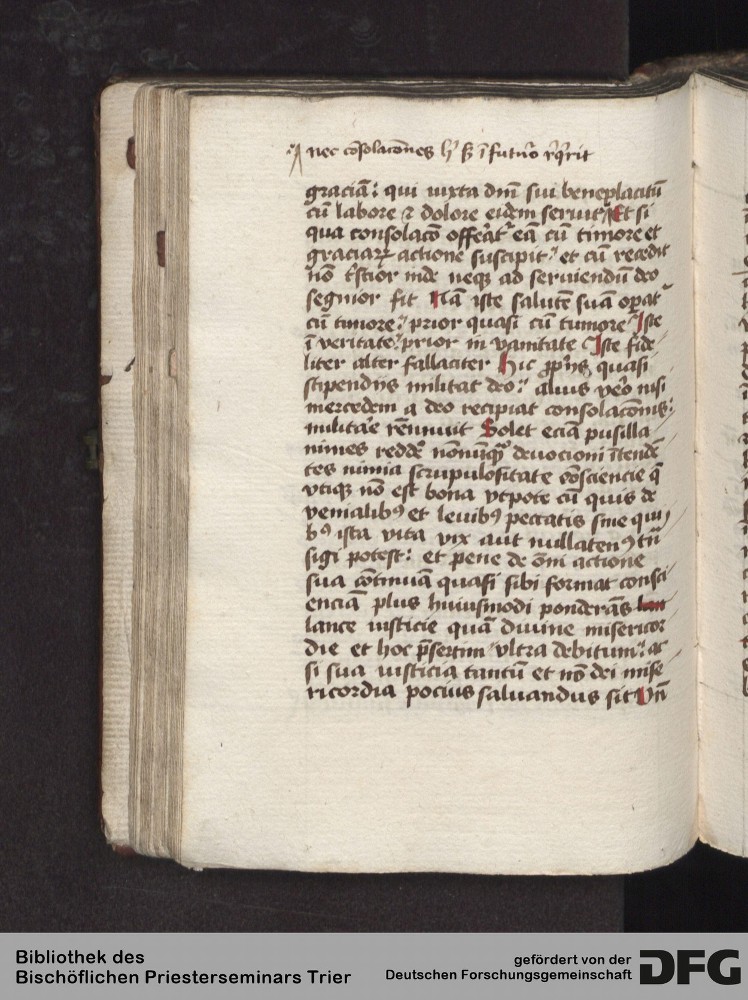 nec cōsolacōnes h' s; ī futuro rͥqͥrit
graciā: qui iuxta dn̄i sui beneplacitū
cū labore ⁊ dolore eidem seruit Et si
qua consolacō offeat᷑ eā cū timore et
graciaꝝ actione suscipit: et cū recedit
nō t͛stior inde neqꝫ ad seruiendū deo
segnior fit Nā iste salutē suā opat᷑
cū timore: prior quasi cū tumore Iste
ī veritate: prior in vanitate Iste fide
liter alter fallaciter Hic ꝓpͥis quasi
stipendiis militat deo: alius veͦo nisi
mercedem a deo recipiat consolacōnis:
militaͬe rēnuit Solet eciā pusilla
nimes reddeͬ nōnūqꝫ deuocioni ītendē
tes nimia scrupulositate cōsciencie q̄
vtiqꝫ nō est bona vtpote cū quis de
venialibꝯ et leuibꝯ peccatis sine qui
bꝯ ista vita vix aut nullatenꝯ tn̄
sigi potest: et pene de om̄i actione
sua cōtinuā quasi sibi format consci
enciā plus huiusmodi ponderās
lance iusticie quā diuine misericor
die et hoc p̄sertim vltra debitum: ac
si sua iusticia tantū et nō dei mise
ricordia pocius saluandus sit Vn̄
Bibliothek des
Bischöflichen Priesterseminars Trier
gefördert von der
Deutschen Forschungsgemeinschaft
DFG